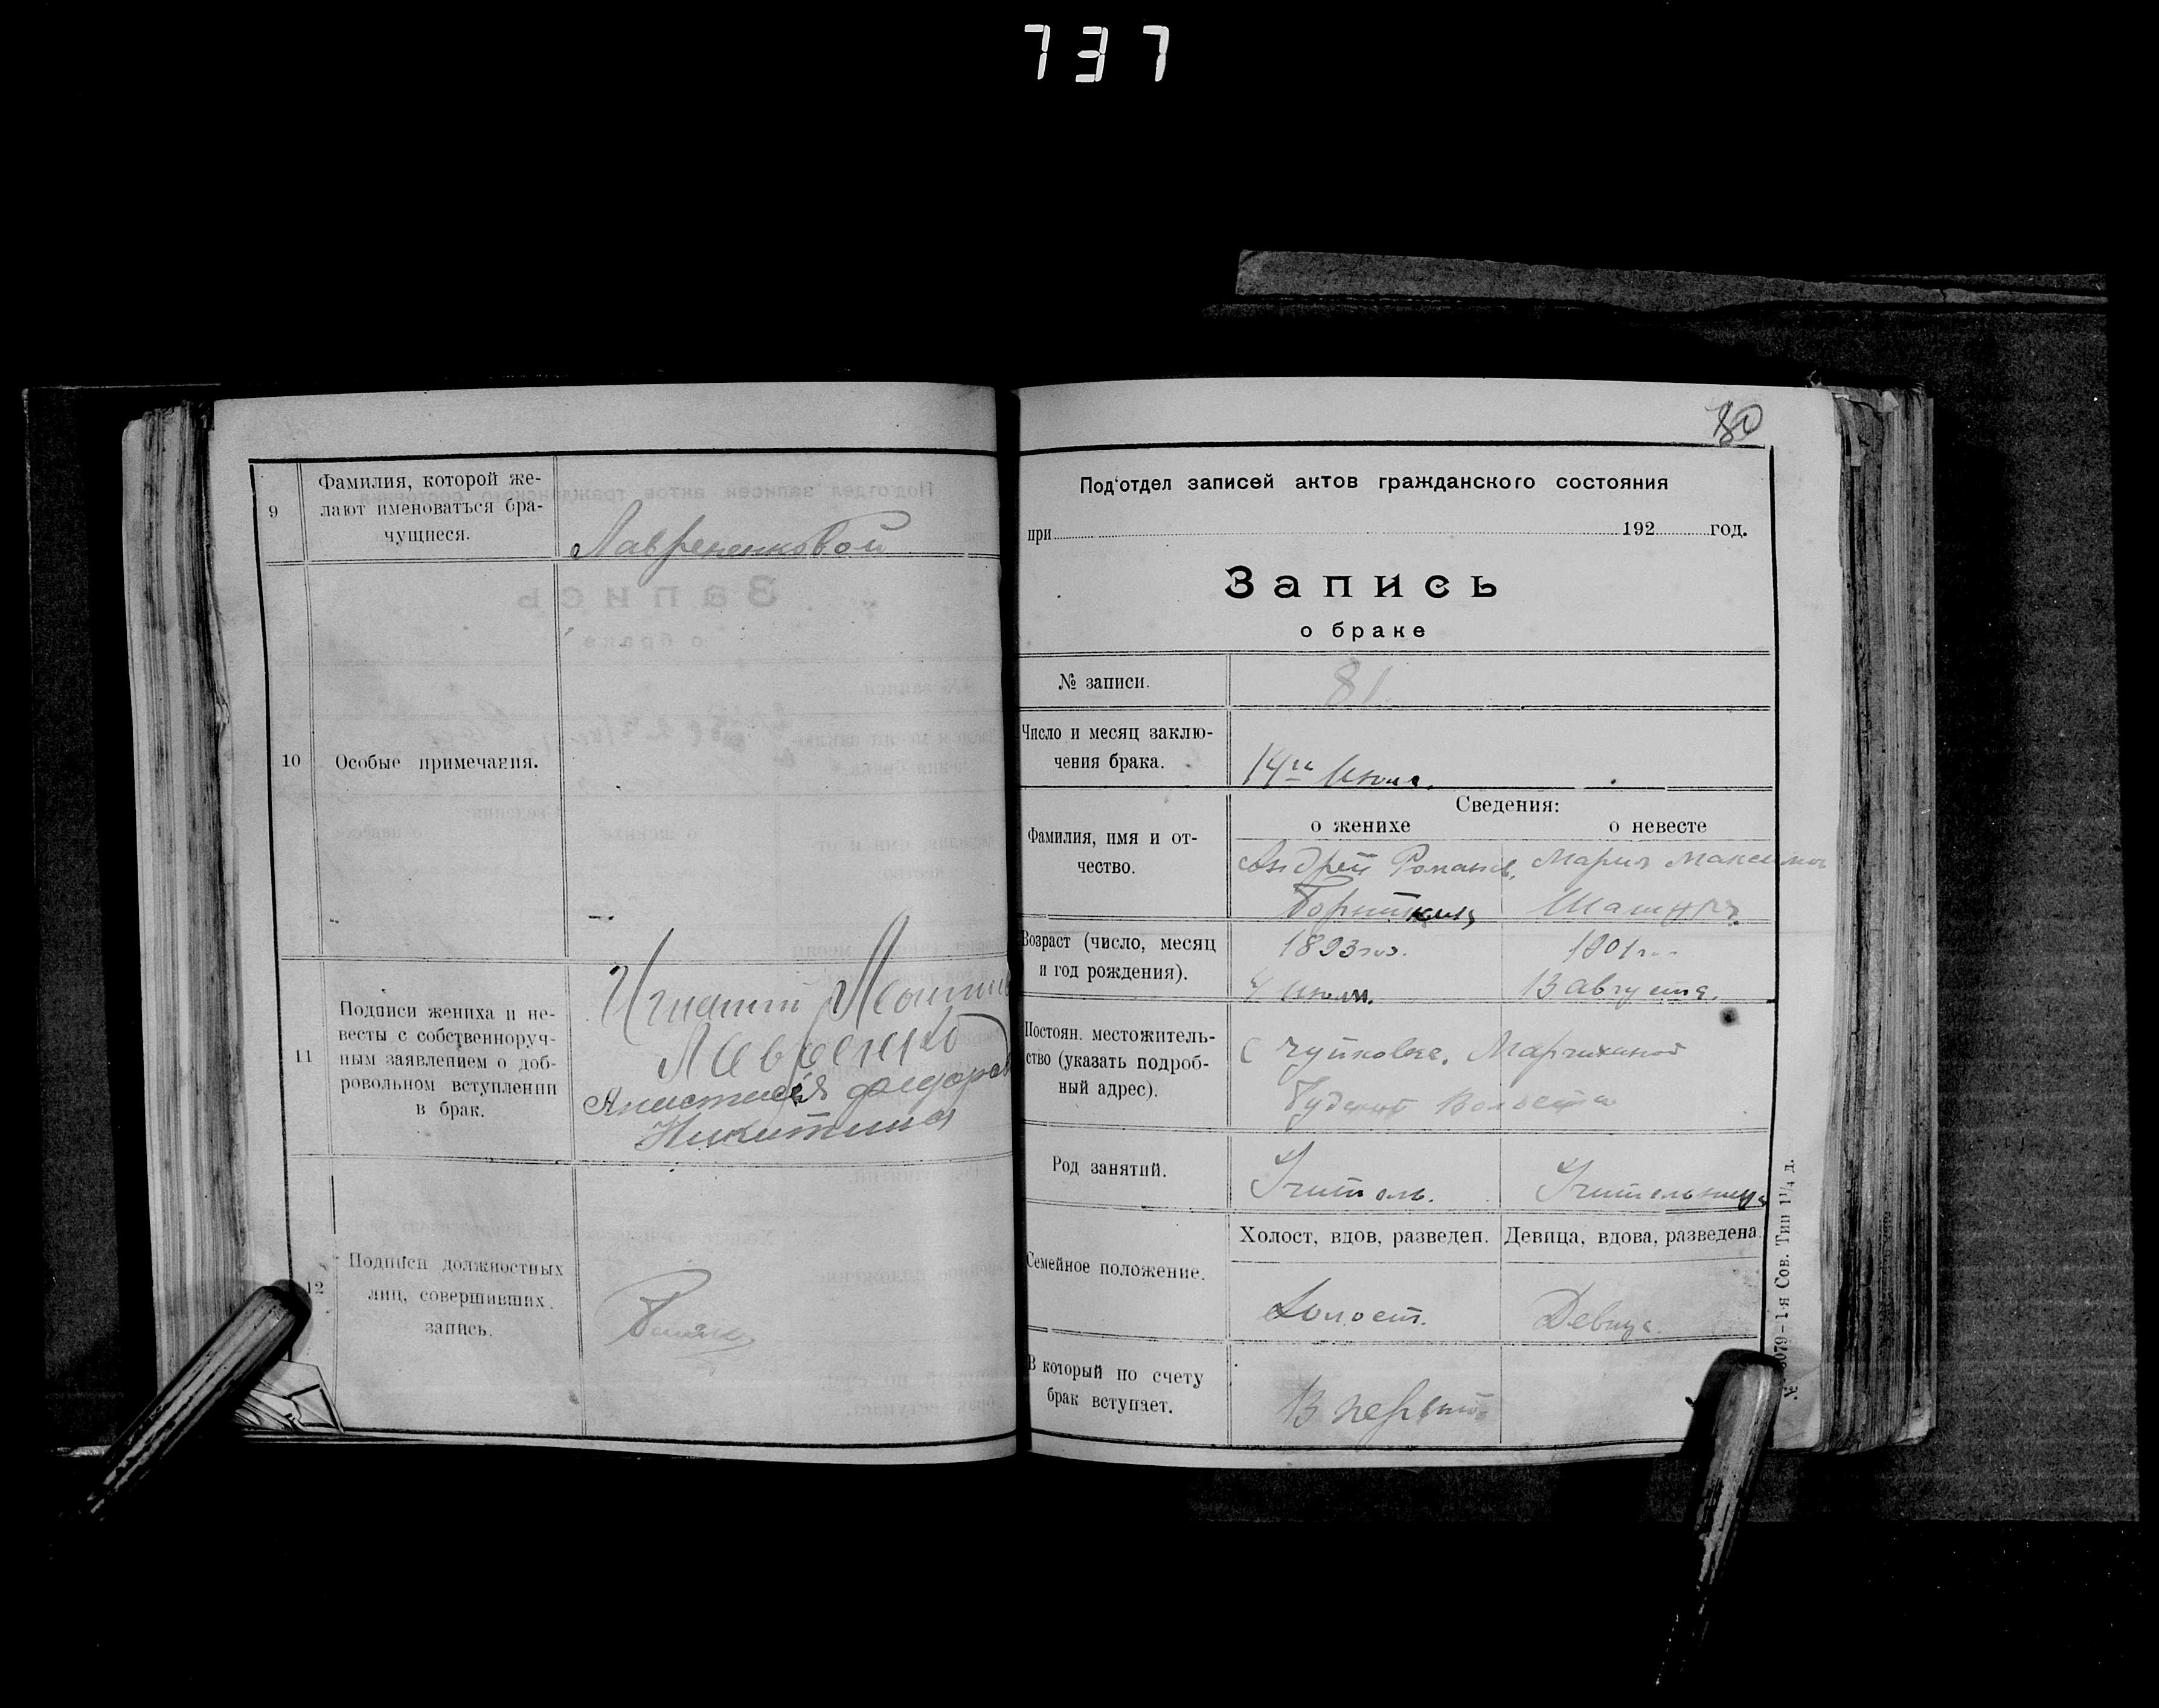 737
9
Фамилия, которой же-
лают именоваться бра-
чущиеся.
Лаврененковой
10
Особые примечания.
11
Подписи жениха и не-
весты с собственноруч-
ным заявлением о доб-
ровольном вступлении
в брак.
Игнатий
Анастасия Федоров
Никитина
12
Подписи должностных
лиц, совершивших
запись.
80
Под'отдел записей актов гражданского состояния
при 192 год.
Запись
о браке
№ записи.
81
Число и месяц заклю-
чения брака.
14го
Сведения:
о женихе о невесте
Фамилия, имя и от-
чество.
Андрей Романов. Мария Максимов
Возраст (число, месяц
и год рождения).
1893 1901
4 13 августа.
Постоян. местожитель-
ство (указать подроб-
ный адрес).
с Чуйковка.
волости
Род занятий.
Учитель. Учительница
Семейное положение.
Холост, вдов, разведен. Девица, вдова, разведена
Холост. Девица
В который по счету
брак вступает.
В первый
1-я Сов. Тип 1¼ д.